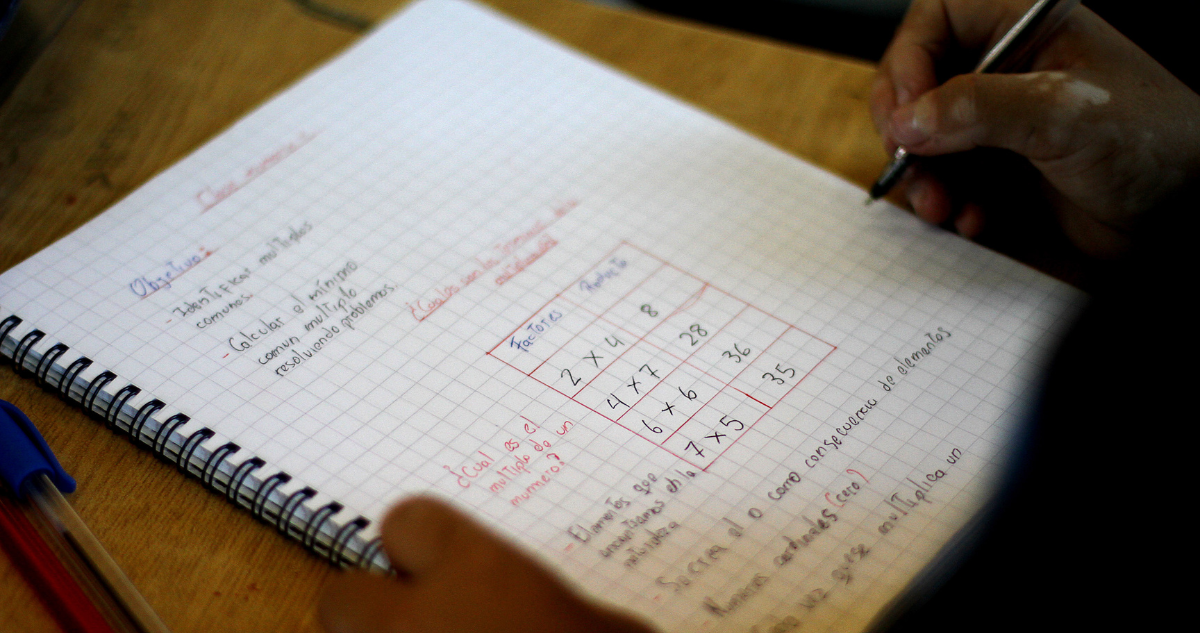 Clase
Objetivo:
- Identificar multiplos
comunes.
- Calcular el mínimo
comun multiplo
resolviendo problemas.
¿Cuales son los
Factores Producto
2 x 4 8
4 x 7 28
6 x 6 36
7 x 5 35
¿Cual es el
multiplo de un
numero?
- Elementos que
encontramos en la
naturaleza
- Se crea el 0 como consecuencia de elementos
Numeros cardinales (cero)
vez que se multiplica un